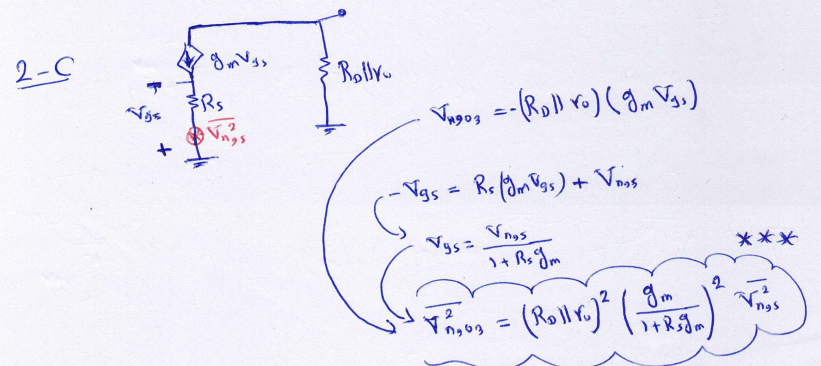 2-C
g_m V_gs
R_D||r_o
- V_gs +
R_S
\overline{V_{n,S}^2}
V_{n,o3} = -(R_D || r_o)(g_m V_gs)
-V_gs = R_S(g_m V_gs) + V_{n,S}
V_gs = \frac{V_{n,S}}{1 + R_S g_m}
***
\overline{V_{n,o3}^2} = (R_D || r_o)^2 \left(\frac{g_m}{1 + R_S g_m}\right)^2 \overline{V_{n,S}^2}